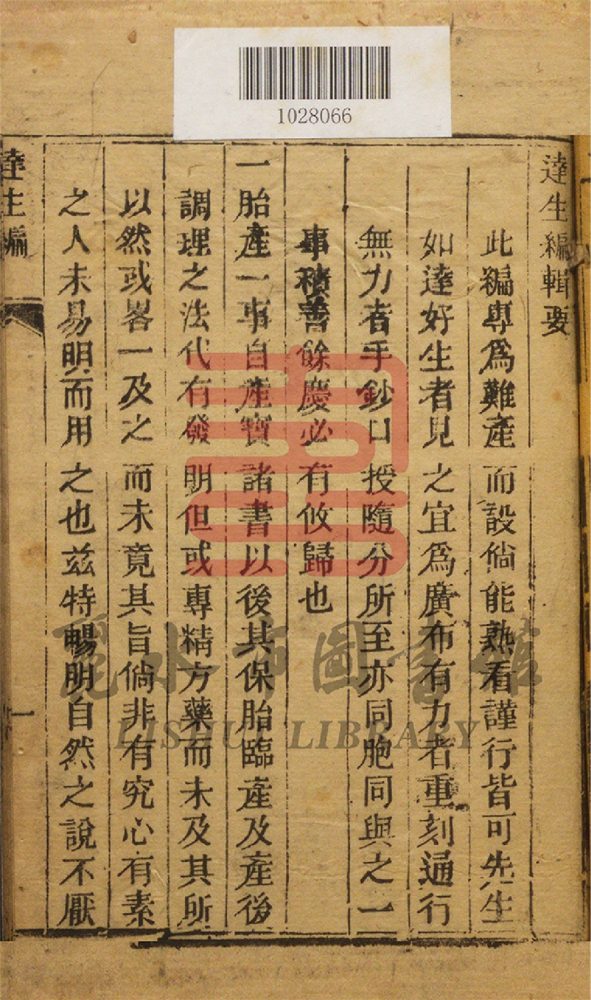 1028066
達生編輯要
此編專爲難產而設倘能熟看謹行皆可先生
如達好生者見之宜爲廣布有力者重刻通行
無力者手鈔口授隨分所至亦同胞同與之一
事積善餘慶必有攸歸也
一胎產一事自產寳諸書以後其保胎臨產及產後
調理之法代有發明但或專精方藥而未及其所
以然或畧一及之而未竟其旨倘非有究心有素
之人未易明而用之也兹特暢明自然之說不厭
達生編
一
麗水市圖書館
LISHUI LIBRARY